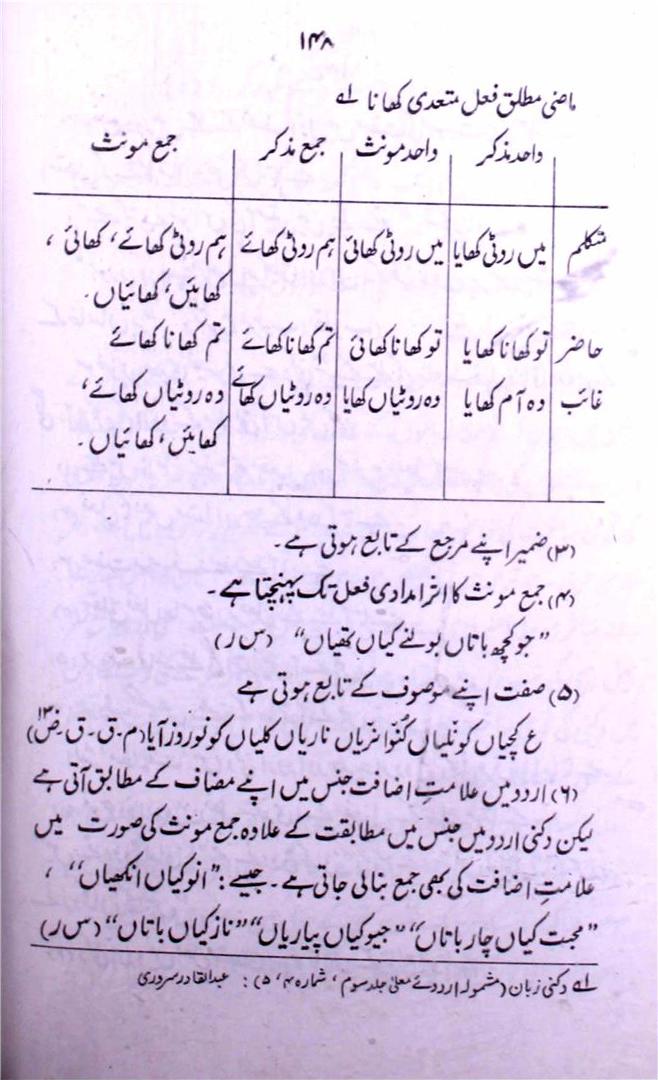 ۱۴۸
ماضی مطلق فعل متعدی کھانا لے
واحد مذکر واحد مونث جمع مذکر جمع مونث
متکلم میں روٹی کھایا میں روٹی کھائی ہم روٹی کھائے ہم روٹی کھائے، کھائی،
کھائیں، کھائیاں۔
حاضر تو کھانا کھایا تو کھانا کھائی تم کھانا کھائے تم کھانا کھائے
غائب دہ آم کھایا دہ روٹیاں کھایا دہ روٹیاں کھائے دہ روٹیاں کھائے،
کھائیں، کھائیاں۔
(۳) ضمیر اپنے مرجع کے تابع ہوتی ہے۔
(۴) جمع مونث کا اثر امدادی فعل تک پہنچتا ہے۔
”جو کچھ باتاں بولنے کیاں تھیاں“ (س ر)
(۵) صفت اپنے موصوف کے تابع ہوتی ہے
ع کچیاں کونلیاں کنوانریاں ناریاں کلیاں کو نو روز آیا (م۔ق۔ق۔ض) ۱۳
(۶) اردو میں علامتِ اضافت جنس میں اپنے مضاف کے مطابق آتی ہے
لیکن دکنی اردو میں جنس میں مطابقت کے علاوہ جمع مونث کی صورت میں
علامتِ اضافت کی بھی جمع بنالی جاتی ہے۔ جیسے: ”انو کیاں انکھیاں“،
”محبت کیاں چار باتاں“ ”جیو کیاں پیاریاں“ ”ناز کیاں باتاں“ (س ر)
لے دکنی زبان (مشمولہ اردوئے معلیٰ جلد سوم، شمارہ ۴، ۵): عبدالقادر سروری